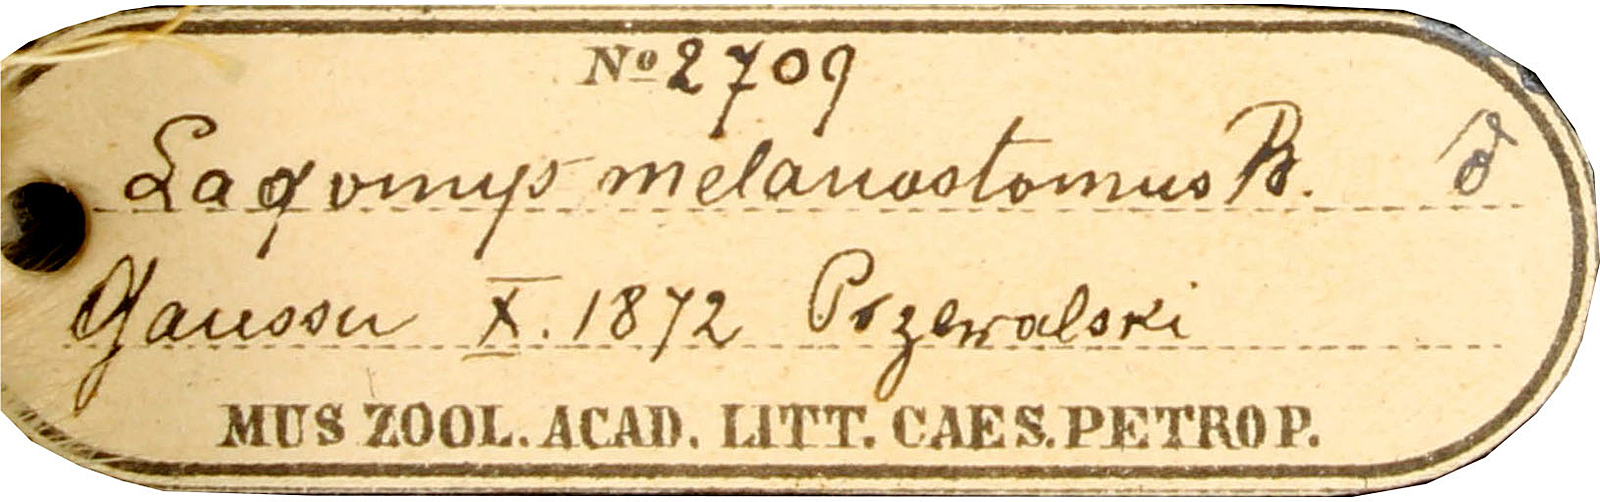 No 2709
Lagomys melanostomus B. ♂
Ganssu X. 1872 Przewalski
MUS ZOOL. ACAD. LITT. CAES. PETROP.